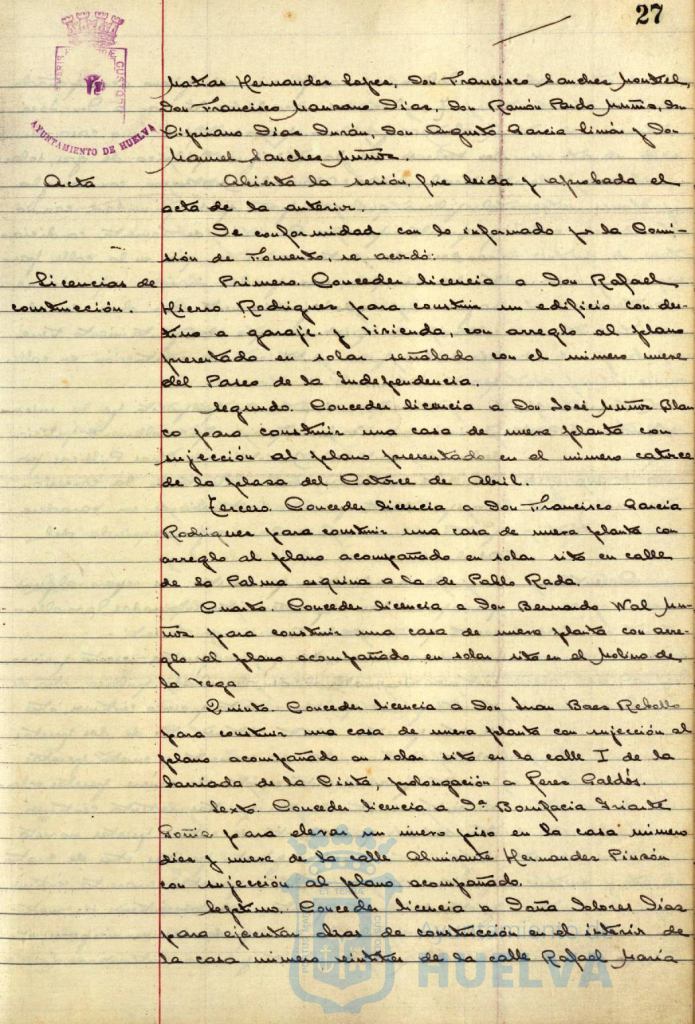 27
AYUNTAMIENTO DE HUELVA
Matías Hernandez Lopez, Don Francisco Sanchez Montiel,
Don Francisco Manzano Diaz, Don Ramón Pardo Muñiz, Don
Cipriano Diaz Durán, Don Augusto Garcia Simón y Don
Manuel Sanchez Muñoz.
Acta
Abierta la sesión, fue leida y aprobada el
acta de la anterior.
De conformidad con lo informado por la Comi-
sión de Fomento, se acordó:
Licencias de
construcción.
Primero. Conceder licencia a Don Rafael
Hierro Rodriguez para construir un edificio con des-
tino a garaje y vivienda, con arreglo al plano
presentado en solar señalado con el número nueve
del Paseo de la Independencia.
Segundo. Conceder licencia a Don José Muñoz Blan
co para construir una casa de nueva planta con
sujección al plano presentado en el número catorce
de la plaza del Catorce de Abril.
Tercero. Conceder licencia a Don Francisco Garcia
Rodriguez para construir una casa de nueva planta con
arreglo al plano acompañado en solar sito en calle
de la Palma esquina a la de Pablo Rada.
Cuarto. Conceder licencia a Don Bernardo Wal Mu-
ñoz para construir una casa de nueva planta con arre-
glo al plano acompañado en solar sito en el Molino de
la Vega
Quinto. Conceder licencia a Don Juan Baez Rebollo
para construir una casa de nueva planta con sujección al
plano acompañado en solar sito en la calle I de la
barriada de la Cinta, prolongación a Perez Galdós.
Sexto. Conceder licencia a Dª Bonifacia Iriarte
para elevar un nuevo piso en la casa número
diez y nueve de la calle Almirante Hernandez Pinzón
con sujección al plano acompañado.
Septimo. Conceder licencia a Doña Dolores Diaz
para ejecutar obras de construcción en el interior de
la casa número veintitres de la calle Rafael María
HUELVA